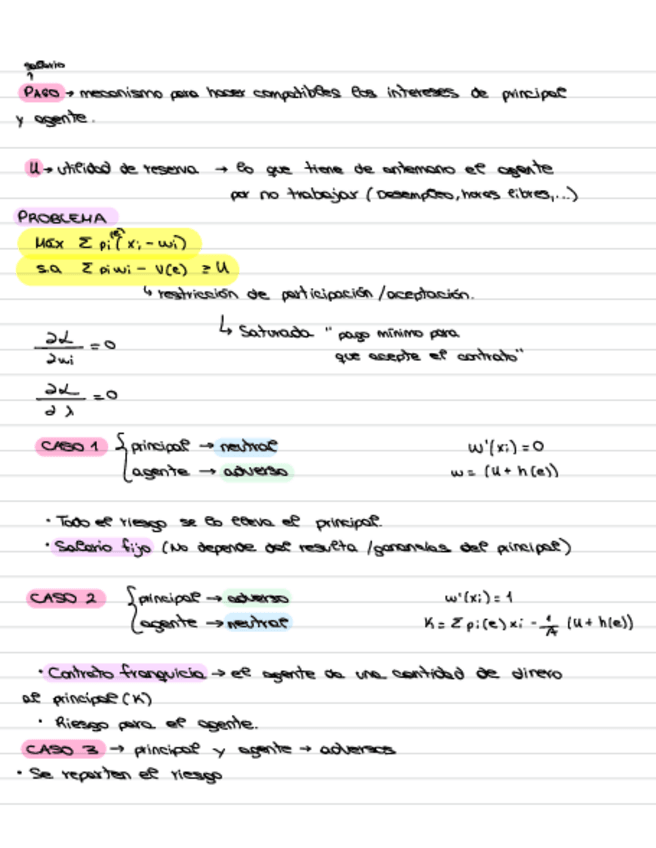 salario
↑
PAGO → mecanismo para hacer compatibles los intereses de principal
y agente.
U → utilidad de reserva → lo que tiene de antemano el agente
por no trabajar (Desempleo, horas libres,...)
PROBLEMA
Máx Σ pi(e) (xi - wi)
s.a Σ pi wi - v(e) ≥ U
↳ restricción de participación /aceptación.
↳ Saturada "pago mínimo para
que acepte el contrato"
∂L/∂wi = 0
∂L/∂λ = 0
CASO 1 { principal → neutral w'(xi) = 0
agente → adverso w = (U + h(e))
· Todo el riesgo se lo lleva el principal.
· Salario fijo (No depende del resulta /ganancias del principal)
CASO 2 { principal → adverso w'(xi) = 1
agente → neutral K = Σ pi(e) xi - 1/A (U + h(e))
· Contrato franquicia → el agente da una cantidad de dinero
al principal (K)
· Riesgo para el agente.
CASO 3 → principal y agente → adversos
· Se reparten el riesgo